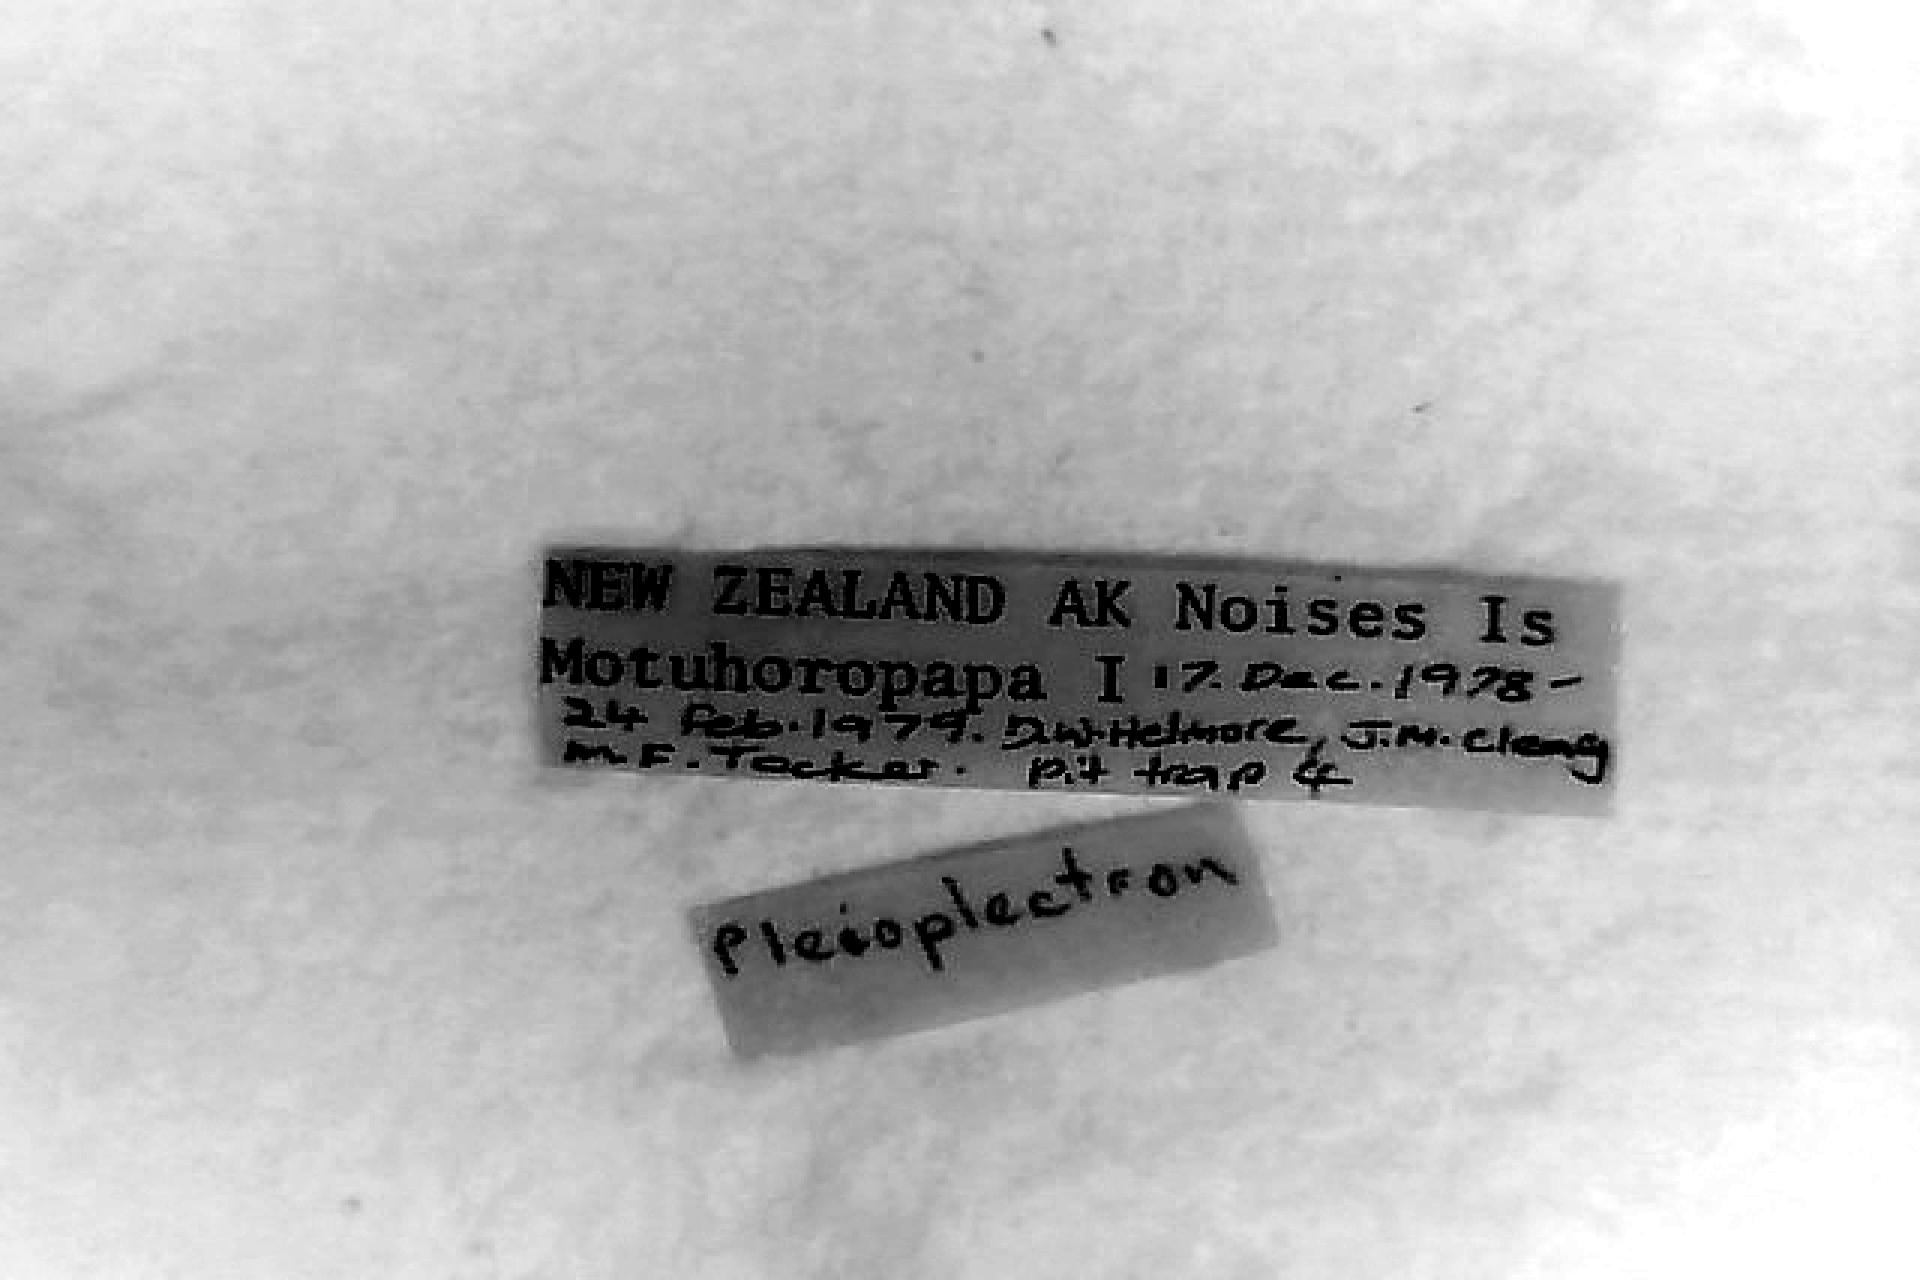 NEW ZEALAND AK Noises Is
Motuhoropapa I 17. Dec. 1978-
24 Feb. 1979. D.W. Helmore, J.M. Cleary
M.F. Tocker. pit trap
Pleioplectron